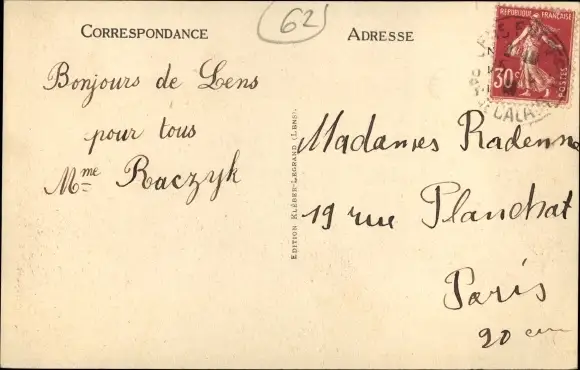 CORRESPONDANCE
62
ADRESSE
RÉPUBLIQUE FRANÇAISE
30c
POSTES
Bonjours de Lens
pour tous
Mme Raczyk
EDITION KLÉBER-LEGRAND (LENS).
Madames Radenne
19 rue Planchat
Paris
20 em
LENS
CALAIS